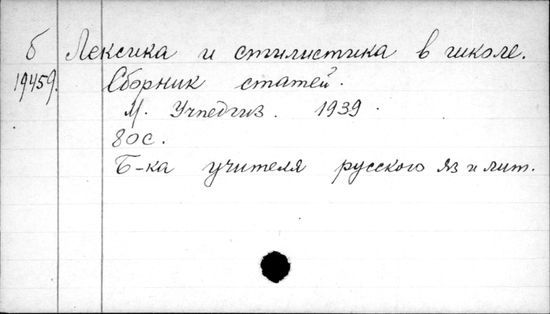 б Лексика и стилистика в школе.
19459. Сборник статей.
М. Учпедгиз. 1939.
80 с.
Б-ка учителя русского яз и лит.